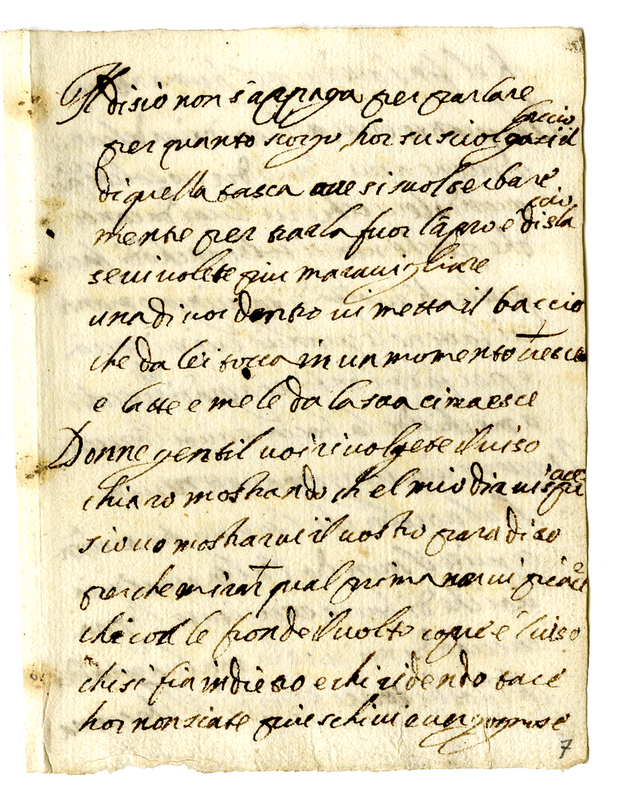 Il disio non s'appaga per parlare
per quanto scorgo, hor su sciolgasi il laccio
di quella tasca ove si suol serbare
mente per trarla fuor l'apro e
se vi volete piu maravigliare
una di voi dentro vi metta il baccio
che da lei tocca in un momento cresce
e latte e mele da la sua cima esce
Donne gentil voi rivolgete il viso
chiaro mostrando ch'el mio dir vi spiace
s'io vo mostrarvi il vostro paradiso
perche mirar qual prima non vi piace
chi con le fronde il volto copre e 'l viso
chi si fia indietro e chi ridendo tace
hor non siate piu schivi e vergognose
7